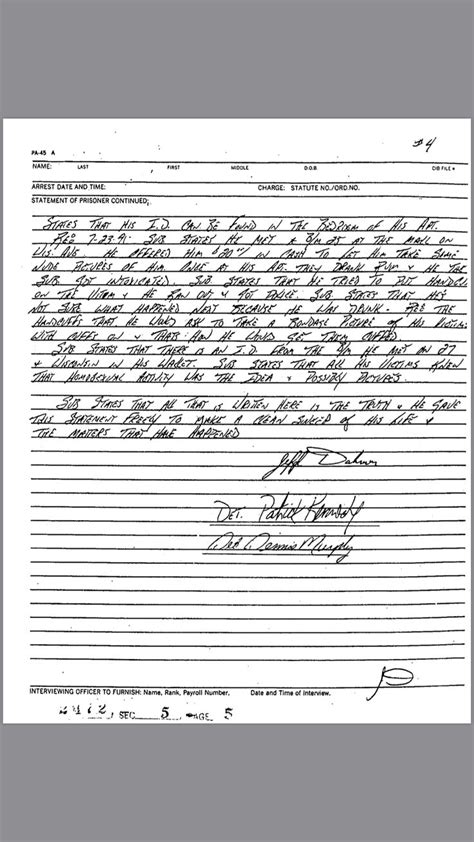 #4
PA-45 A
NAME: LAST FIRST MIDDLE D.O.B. CIB FILE #
ARREST DATE AND TIME: CHARGE: STATUTE NO./ORD.NO.
STATEMENT OF PRISONER CONTINUED:
STATES THAT HIS I.D. CAN BE FOUND IN THE BEDROOM OF HIS APT.
RE: 7-23-91 SUB STATES HE MET A B/M 25 AT THE MALL ON
WIS. AVE HE OFFERED HIM $ IN CASH TO LET HIM TAKE SOME
NUDE PICTURES OF HIM ONCE AT HIS APT. THEY DRANK RUM & HE THE
SUB GOT INTOXICATED SUB STATES THAT HE TRIED TO PUT HANDCUFFS
ON THE VICTIM & HE RAN OUT & GOT POLICE. SUB STATES THAT HE'S
NOT SURE WHAT HAPPENED NEXT BECAUSE HE WAS DRUNK. RE: THE
HANDCUFFS THAT HE WOULD ASK TO TAKE A BONDAGE PICTURE OF HIS VICTIMS
WITH CUFFS ON & THATS HOW HE WOULD GET THEM CUFFED
SUB STATES THAT THERE IS AN I.D. FROM THE HE MET ON 27
& WISCONSIN IN HIS WALLET. SUB STATES THAT ALL HIS VICTIMS KNEW
THAT HOMOSEXUAL ACTIVITY WAS THE IDEA & POSSIBLY PICTURES
SUB STATES THAT ALL THAT IS WRITTEN HERE IS THE TRUTH & HE GAVE
THIS STATEMENT FREELY TO MAKE A CLEAN OF HIS LIFE &
THE MATTERS THAT HAVE HAPPENED
Jeff Dahmer
DET. Patrick Kennedy
Det. Dennis Murphy
INTERVIEWING OFFICER TO FURNISH: Name, Rank, Payroll Number. Date and Time of Interview.
2472, SEC 5, PAGE 5